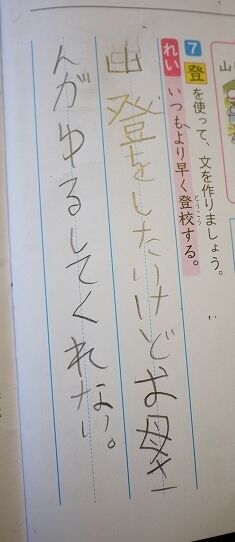 山
7 登を使って、文を作りましょう。
れい いつもより早く登校する。
とうこう
山登をしたいけどお母さ
んがゆるしてくれない。